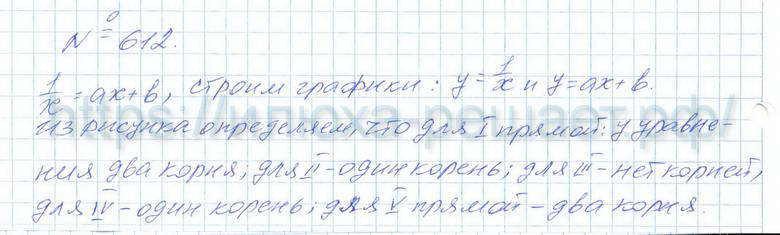 № 612.
1/x = ax+b, строим графики: y = 1/x и y = ax+b.
из рисунка определяем, что для I прямой: у уравне-
ния два корня; для II - один корень; для III - нет корней,
для IV - один корень; для V прямой - два корня.